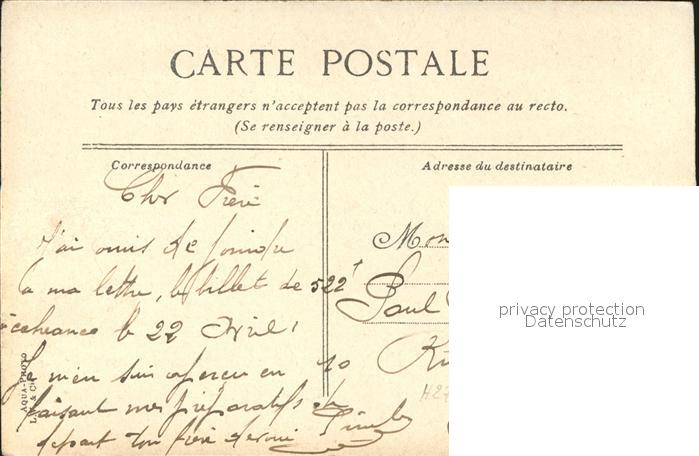 CARTE POSTALE
Tous les pays étrangers n'acceptent pas la correspondance au recto.
(Se renseigner à la poste.)
Correspondance
Cher Frère
J'ai omis de joindre
à ma lettre, le billet de 522 f
échéance le 22 Avril.
Je m'en suis aperçu en
faisant mes préparatifs de
départ ton frère dévoué
Adresse du destinataire
Mon
Paul
10
AQUA-PHOTO
privacy protection
Datenschutz